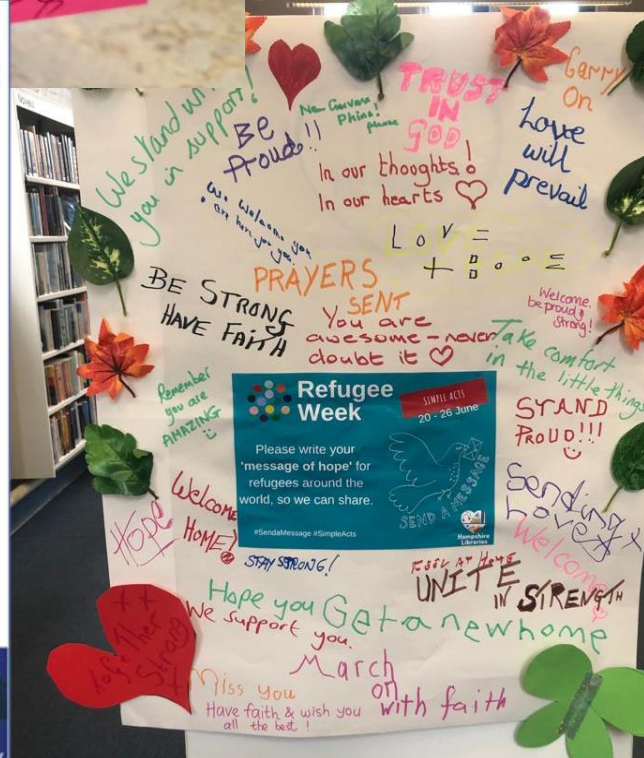 We stand
you in support!
Be
Proud!!
TRUST
IN
GOD
Carry
On
Love
will
prevail
In our thoughts!
In our hearts
We welcome you
LOVE
BE STRONG
HAVE FAITH
PRAYERS
SENT
You are
awesome – never
doubt it
Welcome.
be proud &
Strong!
Take comfort
in the little things
Remember
you are
AMAZING
Refugee
Week
SIMPLE ACTS
20 - 26 June
Please write your
'message of hope' for
refugees around the
world, so we can share.
SEND A MESSAGE
#SendaMessage #SimpleActs
Hampshire
Libraries
STAND
PROUD!!!
Sending
Love
Welcome
Welcome
HOME!
HOPE
STAY STRONG!
FEEL AT HOME
UNITE
IN STRENGTH
Hope you Get a new home
We support you.
Together
Strong
March
on
with faith
Miss you
Have faith & wish you
all the best!